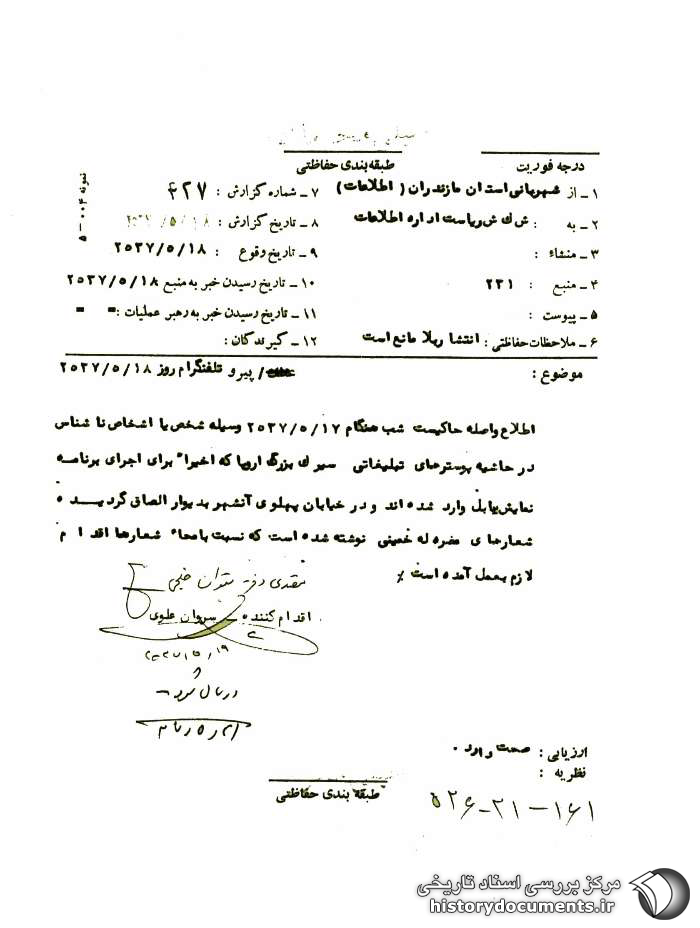 درجه فوریت
طبقه بندی حفاظتی
نمونه ۰۰۴ - ۵
۱ - از شهربانی استان مازندران (اطلاعات)
۲ - به : ش ك ش ریاست اداره اطلاعات
۳ - منشاء :
۴ - منبع : ۲۳۱
۵ - پیوست :
۶ - ملاحظات حفاظتی : انتشار بلا مانع است
۷ - شماره گزارش : ۴۲۷
۸ - تاریخ گزارش : ۲۵۳۷/۵/۱۸
۹ - تاریخ وقوع : ۲۵۳۷/۵/۱۸
۱۰ - تاریخ رسیدن خبر به منبع ۲۵۳۷/۵/۱۸
۱۱ - تاریخ رسیدن خبر به رهبر عملیات : - -
۱۲ - گیرندگان :
موضوع : / پیرو تلفنگرام روز ۲۵۳۷/۵/۱۸
اطلاع واصله حاکیست شب هنگام ۲۵۳۷/۵/۱۷ وسیله شخص یا اشخاص ناشناس
در حاشیه پوسترهای تبلیغاتی سیرك بزرگ اروپا که اخیراً برای اجرای برنامه
نمایش ببابل وارد شده اند و در خیابان پهلوی آنشهر بدیوار الصاق گردیده
شعارهای مضره له خمینی نوشته شده است که نسبت بامحاء شعارها اقدام
لازم بعمل آمده است %
اقدام کننده سروان علوی
ارزیابی : صحت دارد .
نظریه :
طبقه بندی حفاظتی
۰۲۶-۲۱-۱۶۱
مرکز بررسی اسناد تاریخی
historydocuments.ir